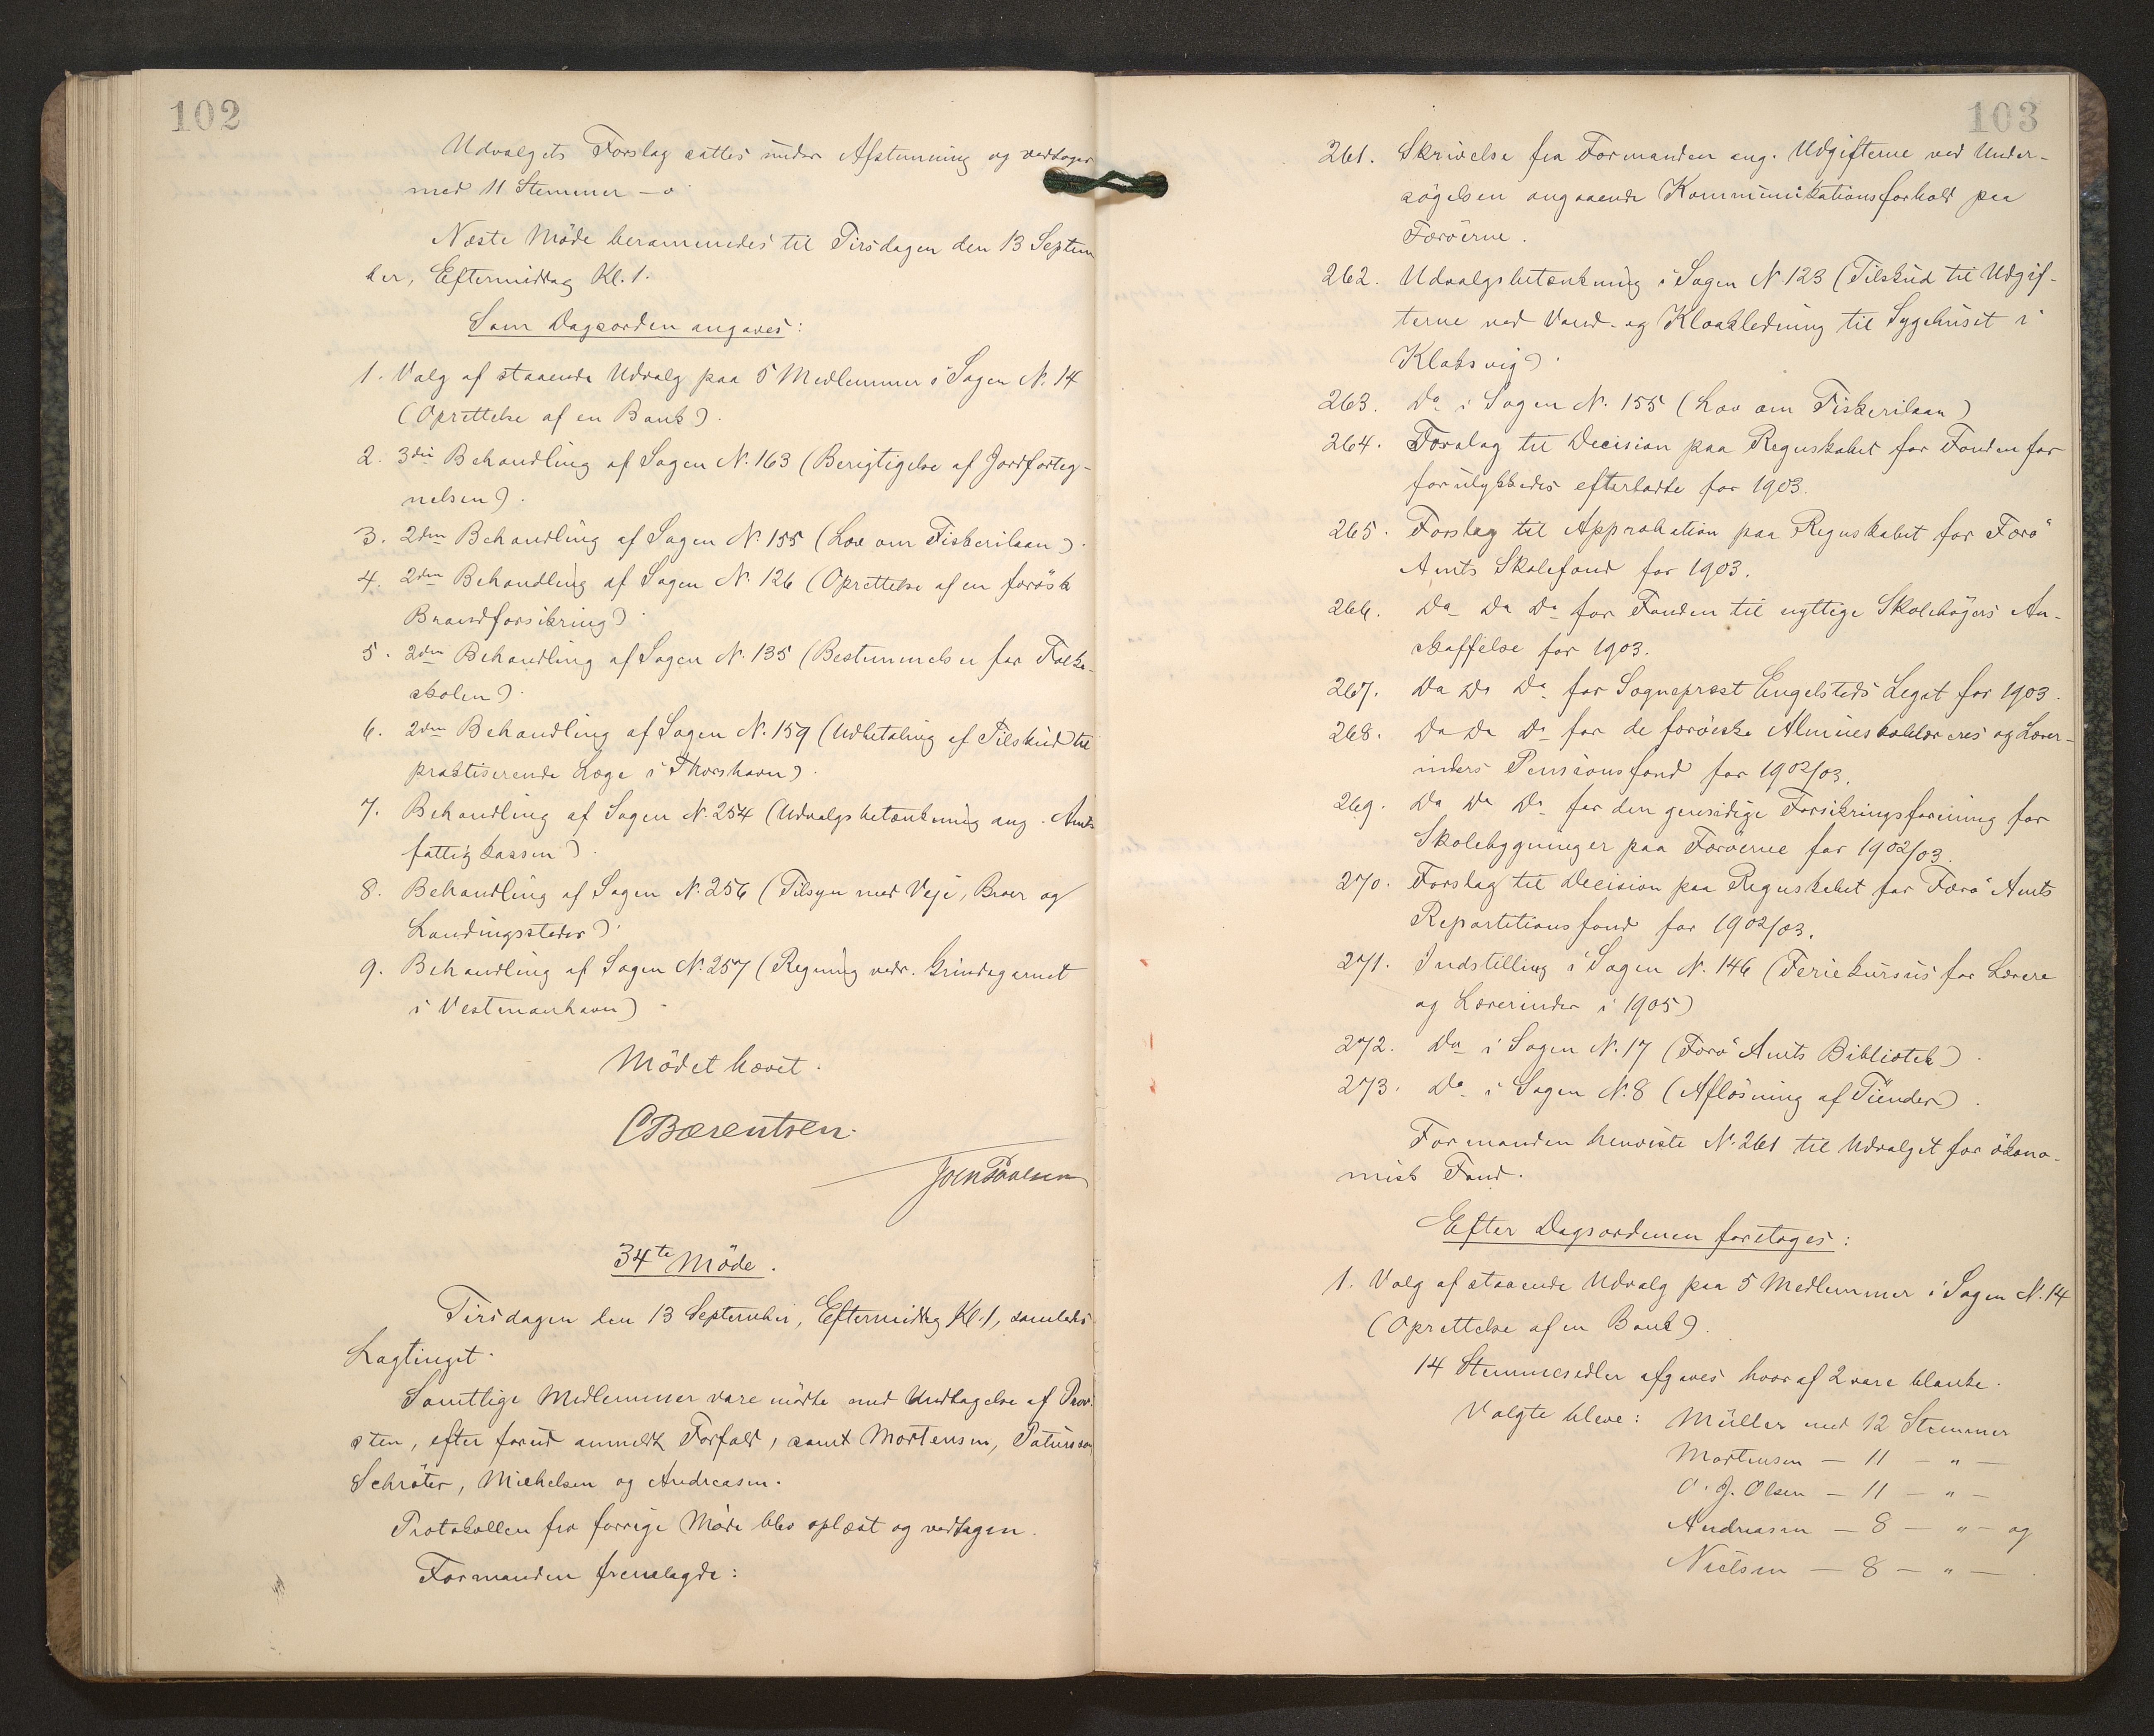 102
Udvalgets Forslag sattes under Afstemning og vedtoges
med 11 Stemmer – o.
Næste Möde berammedes til Tirsdagen den 13 Septem
ber, Eftermiddag Kl. 1.
Som Dagsorden angaves:
1. Valg af staaende Udvalg paa 5 Medlemmer i Sagen N. 14
(Oprettelse af en Bank).
2. 3die Behandling af Sagen N. 163 (Berigtigelse af Jordforteg-
nelsen).
3. 2den Behandling af Sagen N. 155 (Lov om Fiskerilaan).
4. 2den Behandling af Sagen N. 126 (Oprettelse af en færösk
Brandforsikring).
5. 2den Behandling af Sagen N. 135 (Bestemmelser for Folke-
skolen).
6. 2den Behandling af Sagen N. 159 (Udbetaling af Tilskud til
praktiserende Læge i Thorshavn).
7. Behandling af Sagen N. 254 (Udvalgsbetænkning ang. Amts
fattigkassen).
8. Behandling af Sagen N. 256 (Tilsyn med Veje, Broer og
Landingssteder).
9. Behandling af Sagen N. 257 (Regning vedr. Grindegarnet
i Vestmanhavn).
Mödet hævet.
CBærentsen.
Joen Poulsen
34te Möde.
Tirsdagen den 13 September, Eftermiddag Kl. 1, samledes
Lagtinget.
Samtlige Medlemmer vare mödte med Undtagelse af Prov-
sten, efter forud anmeldt Forfald, samt Mortensen, Patursson
Schröter, Michelsen og Andreasen.
Protokollen fra forrige Möde blev oplæst og vedtagen.
Formanden fremlagde:
103
261. Skrivelse fra Formanden ang. Udgifterne ved Under-
sögelsen angaaende Kommunikationsforhold paa
Færöerne.
262. Udvalgsbetænkning i Sagen N 123 (Tilskud til Udgif-
terne ved Vand- og Kloakledning til Sygehuset i
Klaksvig).
263. Do i Sagen N. 155 (Lov om Fiskerilaan)
264. Forslag til Decision paa Regnskabet for Fonden for
forulykkedes efterladte for 1903.
265. Forslag til Approbation paa Regnskabet for Færö
Amts Skolefond for 1903.
266. Do Do Do for Fonden til nyttige Skolebögers An-
skaffelse for 1903.
267. Do Do Do for Sognepræst Engelsteds Legat for 1903.
268. Do Do Do for de færöiske Almueskolelæreres og Lærer-
inders Pensionsfond for 1902/03.
269. Do Do Do for den gensidige Forsikringsforening for
Skolebygninger paa Færöerne for 1902/03.
270. Forslag til Decision paa Regnskabet for Færö Amts
Repartitionsfond for 1902/03.
271. Indstilling i Sagen N. 146 (Feriekursus for Lærere
og Lærerinder i 1905)
272. Do i Sagen N. 17 (Færö Amts Bibliotek).
273. Do i Sagen N. 8 (Aflösning af Tiender).
Formanden henviste N. 261 til Udvalget for ökono-
misk Fond.
Efter Dagsordenen foretoges:
1. Valg af staaende Udvalg paa 5 Medlemmer i Sagen N. 14
(Oprettelse af en Bank).
14 Stemmesedler afgaves hvoraf 2 vare blanke.
Valgte bleve: Müller med 12 Stemmer
Mortensen – 11 – " –
O. J. Olsen – 11 – " –
Andreasen – 8 – " – og
Nielsen – 8 – " – .